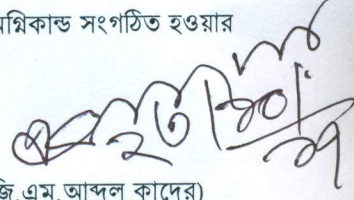 অগ্নিকান্ড সংগঠিত হওয়ার
জি.এম.আব্দুল কাদের)